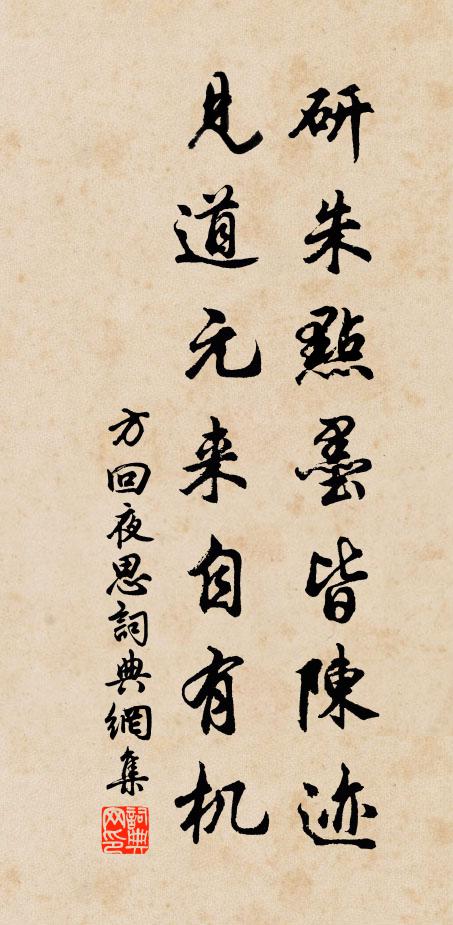 研朱點墨皆陳迹
見道元来自有机
方回夜思詞典網集
詞典网印